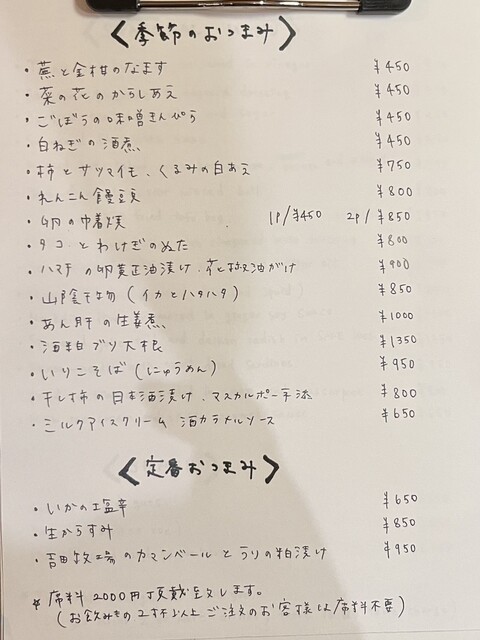 〈季節のおつまみ〉
・蕪と金柑のなます ¥450
・菜の花のからしあえ ¥450
・ごぼうの味噌きんぴら ¥450
・白ねぎの酒煮 ¥450
・柿とサツマイモ、くるみの白あえ ¥750
・れんこん饅頭 ¥800
・卵の巾着焼 1P/¥450 2P/¥850
・タコとわけぎのぬた ¥800
・ハマチの卵黄正油漬け、花椒油がけ ¥900
・山陰干物(イカとハタハタ) ¥850
・あん肝の生姜煮 ¥1000
・酒粕ブリ大根 ¥1350
・いりこそば(にゅうめん) ¥950
・干し柿の日本酒漬け、マスカルポーネ添 ¥800
・ミルクアイスクリーム 酒カラメルソース ¥650
〈定番おつまみ〉
・いかの塩辛 ¥650
・生からすみ ¥850
・吉田牧場のカマンベールとうりの粕漬け ¥950
* 席料2000円頂戴致します。
(お飲みもの2杯以上ご注文のお客様は席料不要)